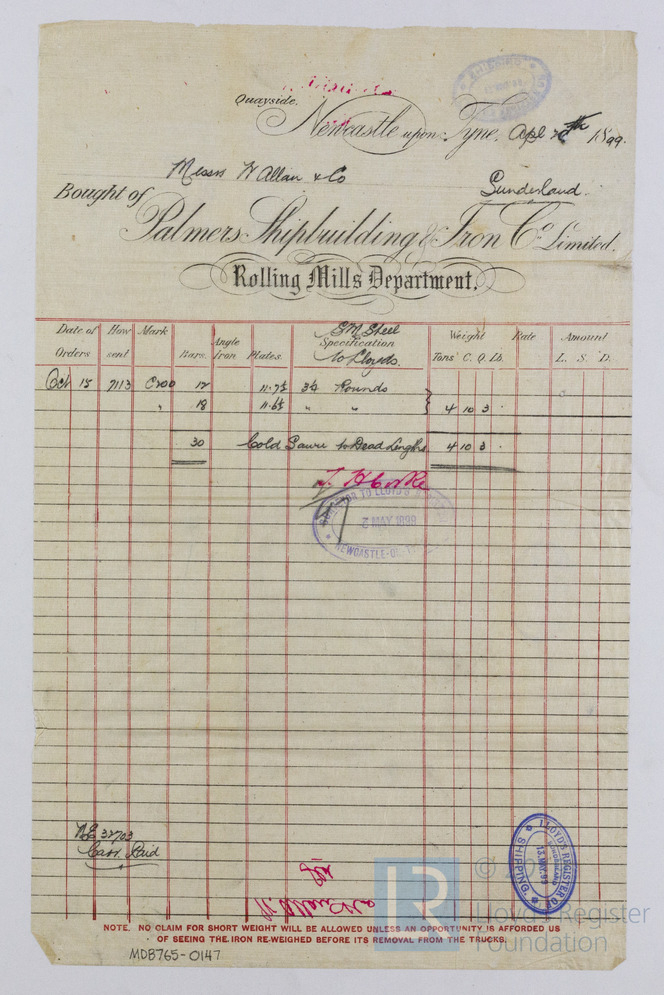 SHIPPING
Quayside.
Newcastle upon Tyne, Apl th 1899.
Messrs W Allan & Co
Sunderland.
Bought of
Palmers Shipbuilding & Iron Co. Limited.
Rolling Mills Department.
Date of Orders How sent Mark Bars. Angle Iron Plates. SM Steel Specification to Lloyds. Weight Tons C. Q. Lb. Rate Amount L. S. D.
Oct 15 7113 C200 12 11.7½ 3¼ Rounds
" 18 " " } 4 10 3 .
30 Cold Sawn to Dead Lengths 4 10 3 .
SURVEYOR TO LLOYD'S
MAY 1899
NEWCASTLE-ON-
NE 32703
Carr. Paid
LLOYD'S REGISTER OF SHIPPING.
SUNDERLAND
13. MAY. 99
©
LR
Lloyd's Register
Foundation
NOTE. NO CLAIM FOR SHORT WEIGHT WILL BE ALLOWED UNLESS AN OPPORTUNITY IS AFFORDED US
OF SEEING THE IRON RE-WEIGHED BEFORE ITS REMOVAL FROM THE TRUCKS.
MDB765-0147